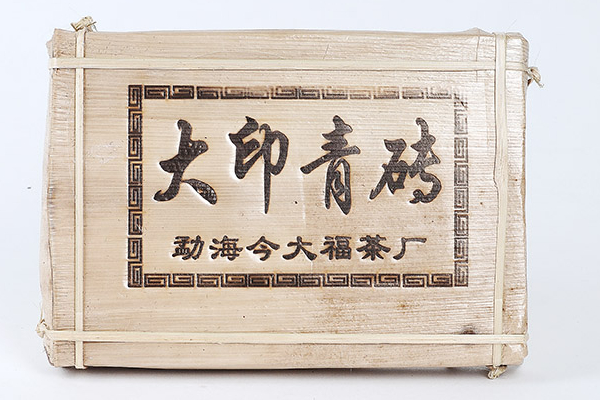 大印青砖
勐海今大福茶厂